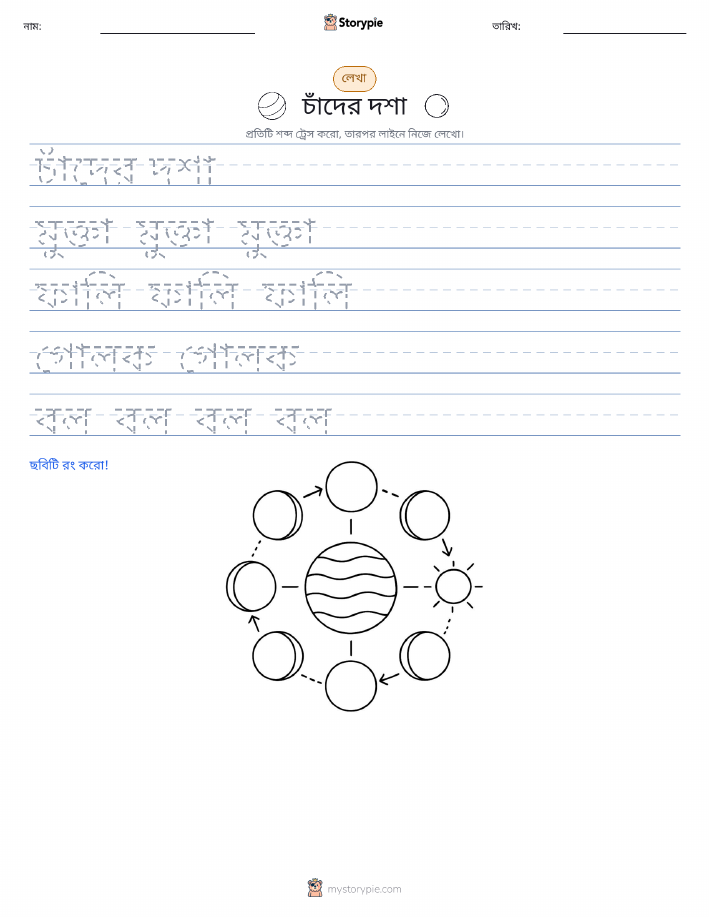 নাম:
Storypie
তারিখ:
লেখা
চাঁদের দশা
প্রতিটি শব্দ ট্রেস করো, তারপর লাইনে নিজে লেখো।
চাঁদের দশা
মুক্তা মুক্তা মুক্তা
ফালি ফালি ফালি
গোলক গোলক
বল বল বল বল
ছবিটি রং করো!
mystorypie.com